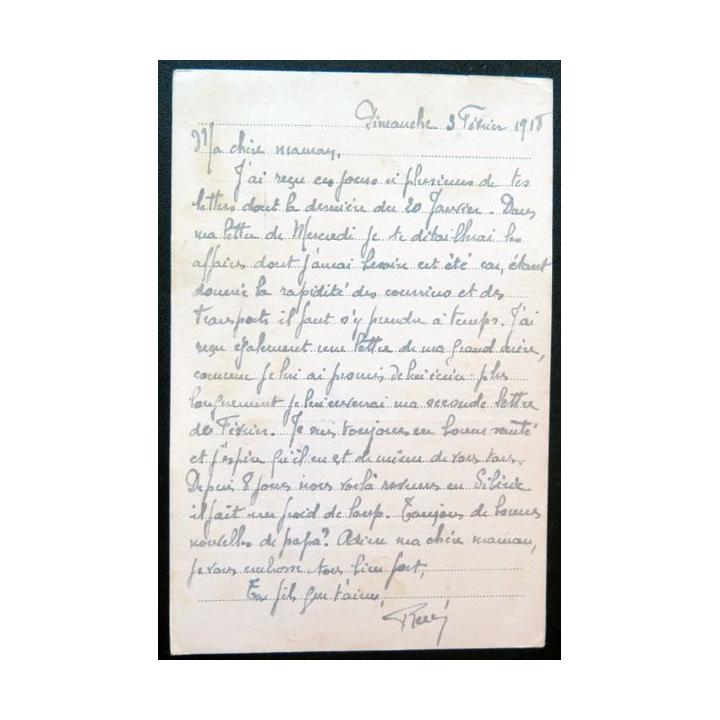 Dimanche 3 Février 1918
Ma chère maman,
J'ai reçu ces jours ci plusieurs de tes
lettres dont la dernière du 20 Janvier. Dans
ma lettre de Mercredi je te détaillerai les
affaires dont j'aurai besoin cet été car, étant
donnée la rapidité des courriers et des
transports il faut s'y prendre à temps. J'ai
reçu également une lettre de ma grand mère,
comme je lui ai promis de lui écrire plus
longuement je lui enverrai ma seconde lettre
de Février. Je suis toujours en bonne santé
et j'espère qu'il en est de même de vous tous.
Depuis 8 jours nous voilà revenus en Sibérie
il fait un froid de loup. Toujours de bonnes
nouvelles de papa? Adieu ma chère maman,
je vous embrasse tous bien fort,
Ton fils qui t'aime,
René